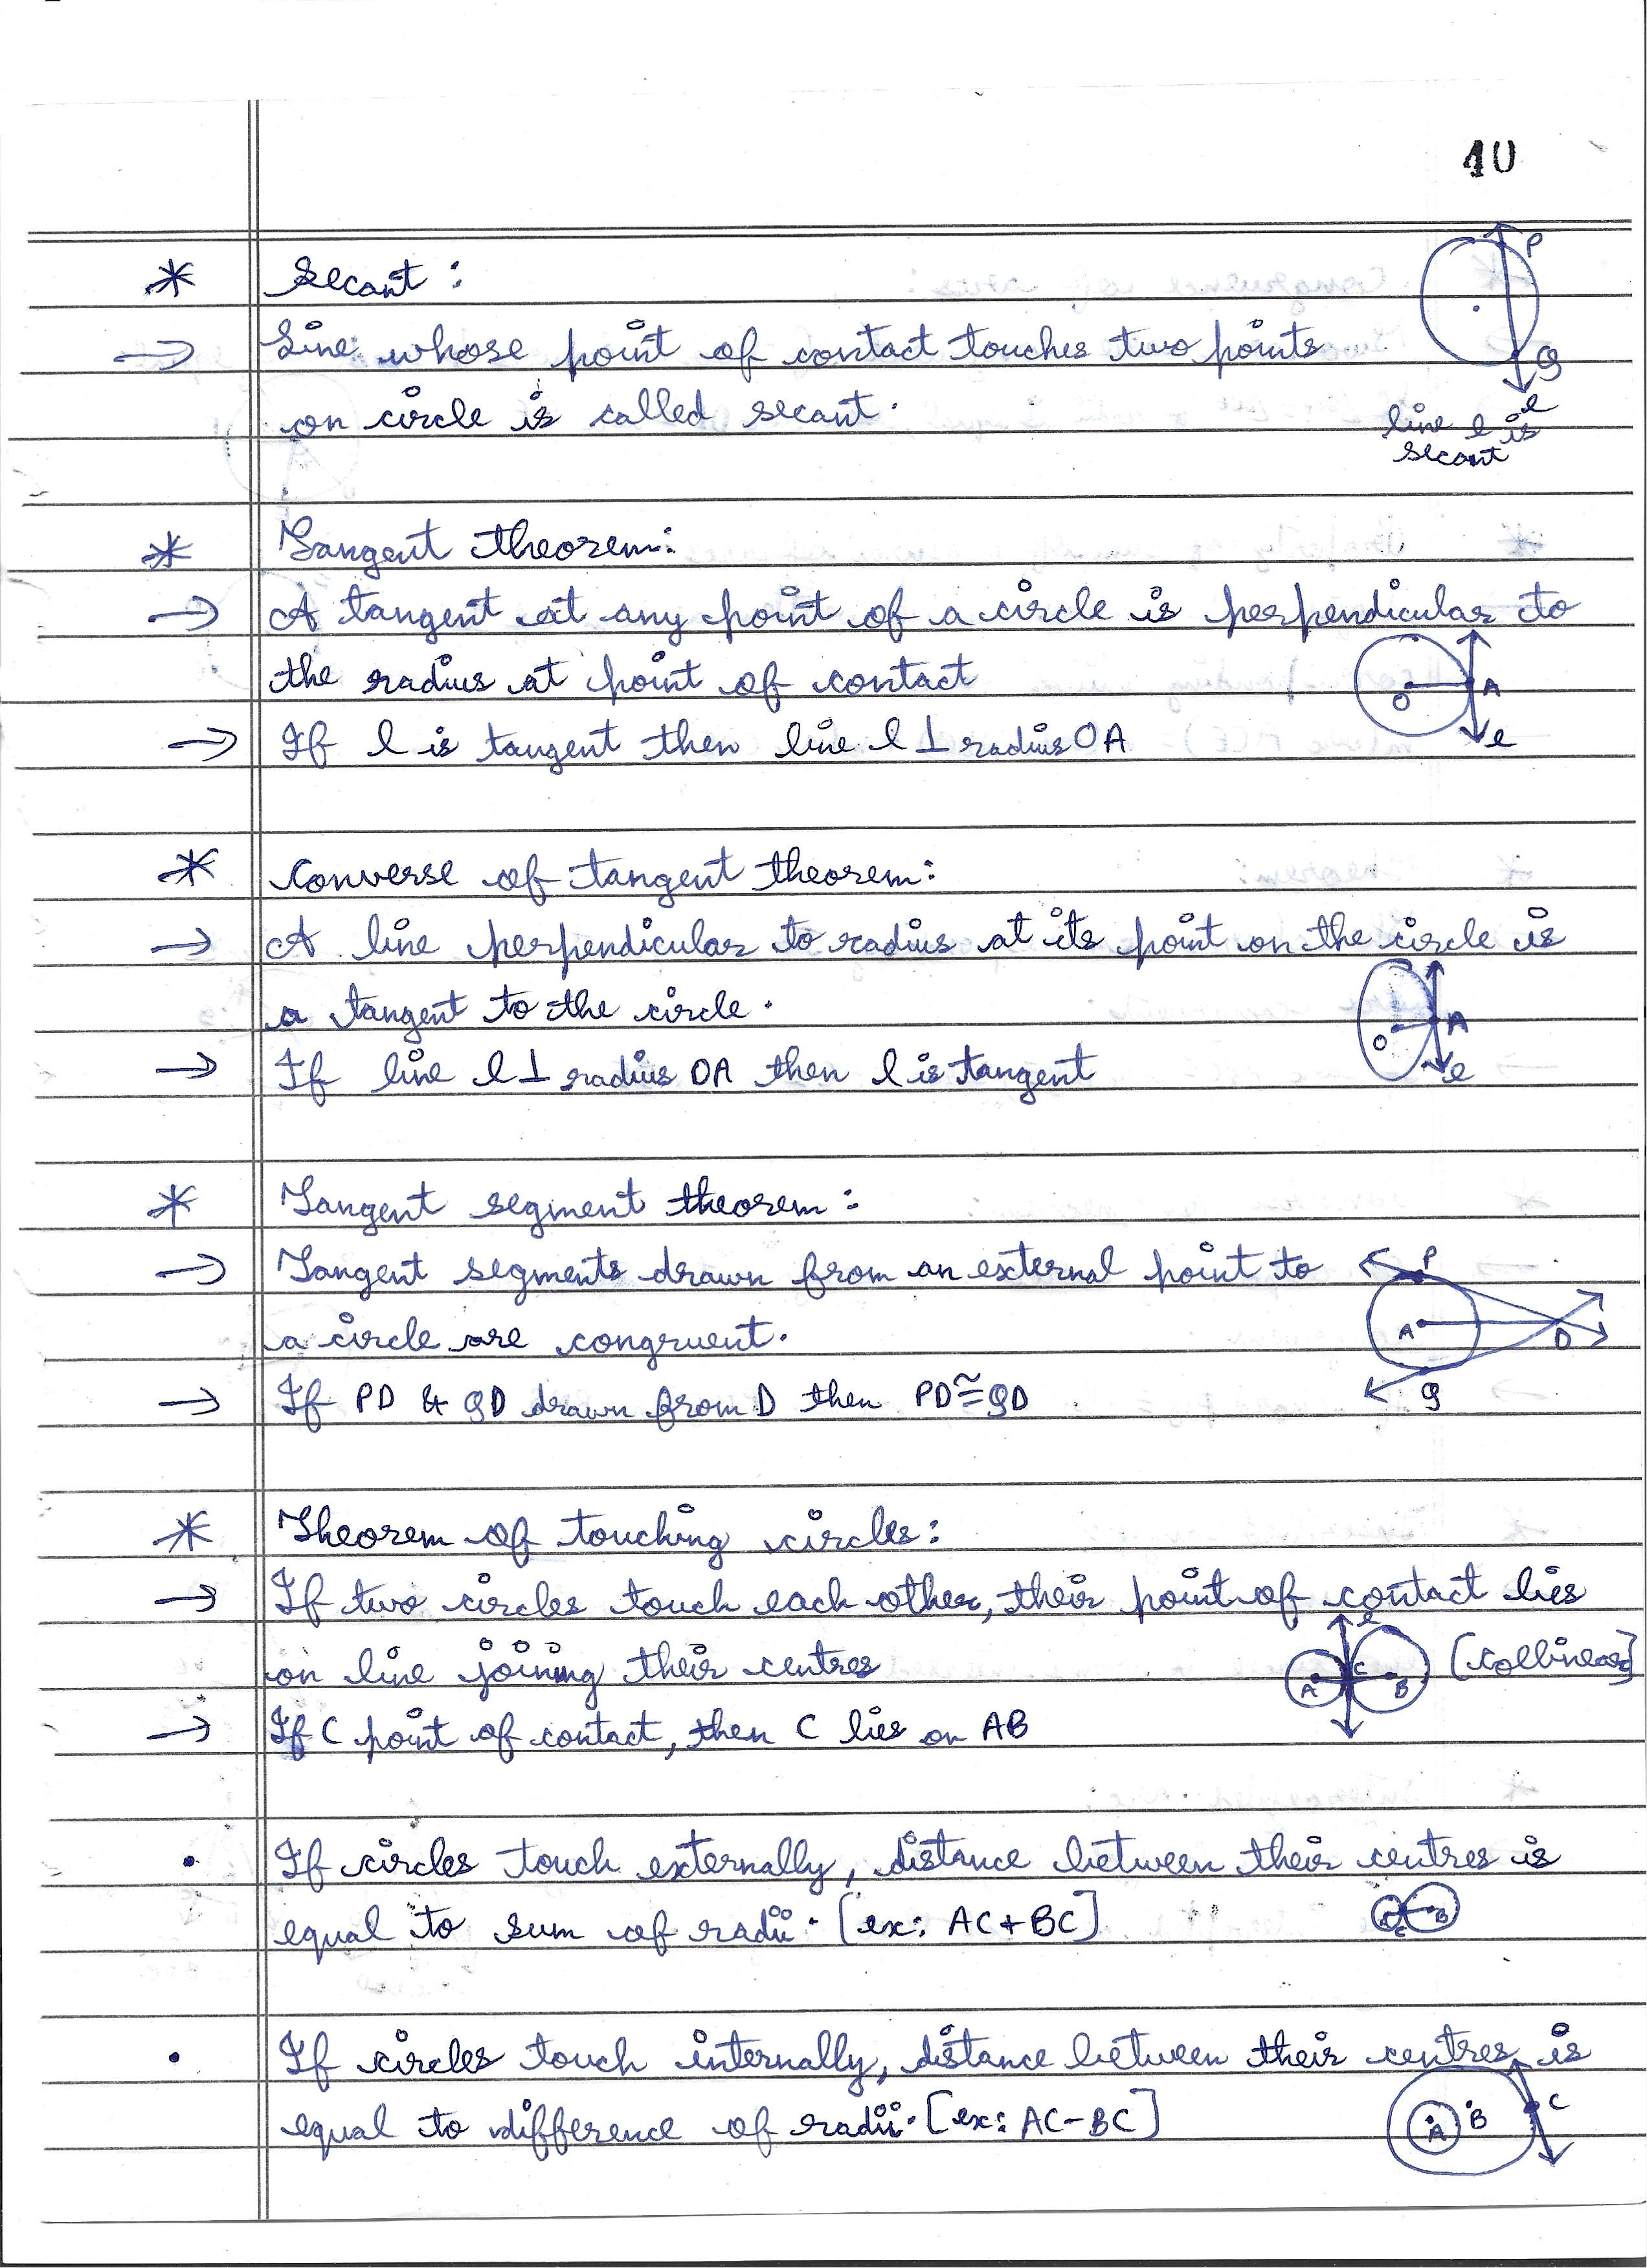 40
* Secant :
→ Line whose point of contact touches two points
on circle is called secant.
P
Q
l
line l is
secant
* Tangent theorem:
→ A tangent at any point of a circle is perpendicular to
the radius at point of contact
O A
l
→ If l is tangent then line l ⊥ radius OA
* Converse of tangent theorem:
→ A line perpendicular to radius at its point on the circle is
a tangent to the circle.
O A
l
→ If line l ⊥ radius OA then l is tangent
* Tangent segment theorem :
→ Tangent segments drawn from an external point to
P
a circle are congruent.
A D
→ If PD & QD drawn from D then PD ≅ QD
Q
* Theorem of touching circles :
→ If two circles touch each other, their point of contact lies
on line joining their centres
l
A C B [collinear]
→ If C point of contact, then C lies on AB
• If circles touch externally, distance between their centres is
equal to sum of radii. [ex: AC + BC]
A C B
• If circles touch internally, distance between their centres is
equal to difference of radii. [ex: AC - BC]
A B C